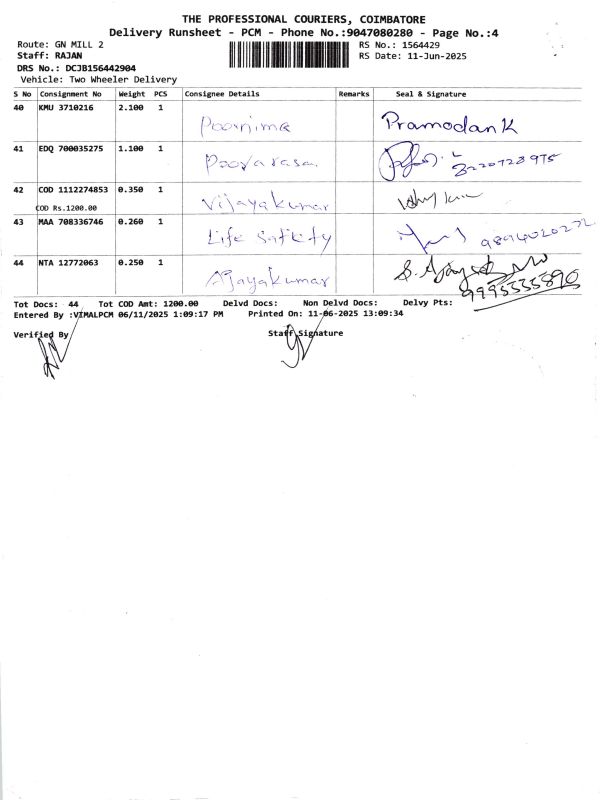 THE PROFESSIONAL COURIERS, COIMBATORE
Delivery Runsheet - PCM - Phone No.:9047080280 - Page No.:4
Route: GN MILL 2 RS No.: 1564429
Staff: RAJAN RS Date: 11-Jun-2025
DRS No.: DCJB156442904
Vehicle: Two Wheeler Delivery
S No Consignment No Weight PCS Consignee Details Remarks Seal & Signature
40 KMU 3710216 2.100 1 Poornima Pramodan K
41 EDQ 700035275 1.100 1 Poovarasan
42 COD 1112274853 0.350 1 Vijayakumar
COD Rs.1200.00
43 MAA 708336746 0.260 1 Life Safety
44 NTA 12772063 0.250 1 Ajayakumar
Tot Docs: 44 Tot COD Amt: 1200.00 Delvd Docs: Non Delvd Docs: Delvy Pts:
Entered By :VIMALPCM 06/11/2025 1:09:17 PM Printed On: 11-06-2025 13:09:34
Verified By Staff Signature